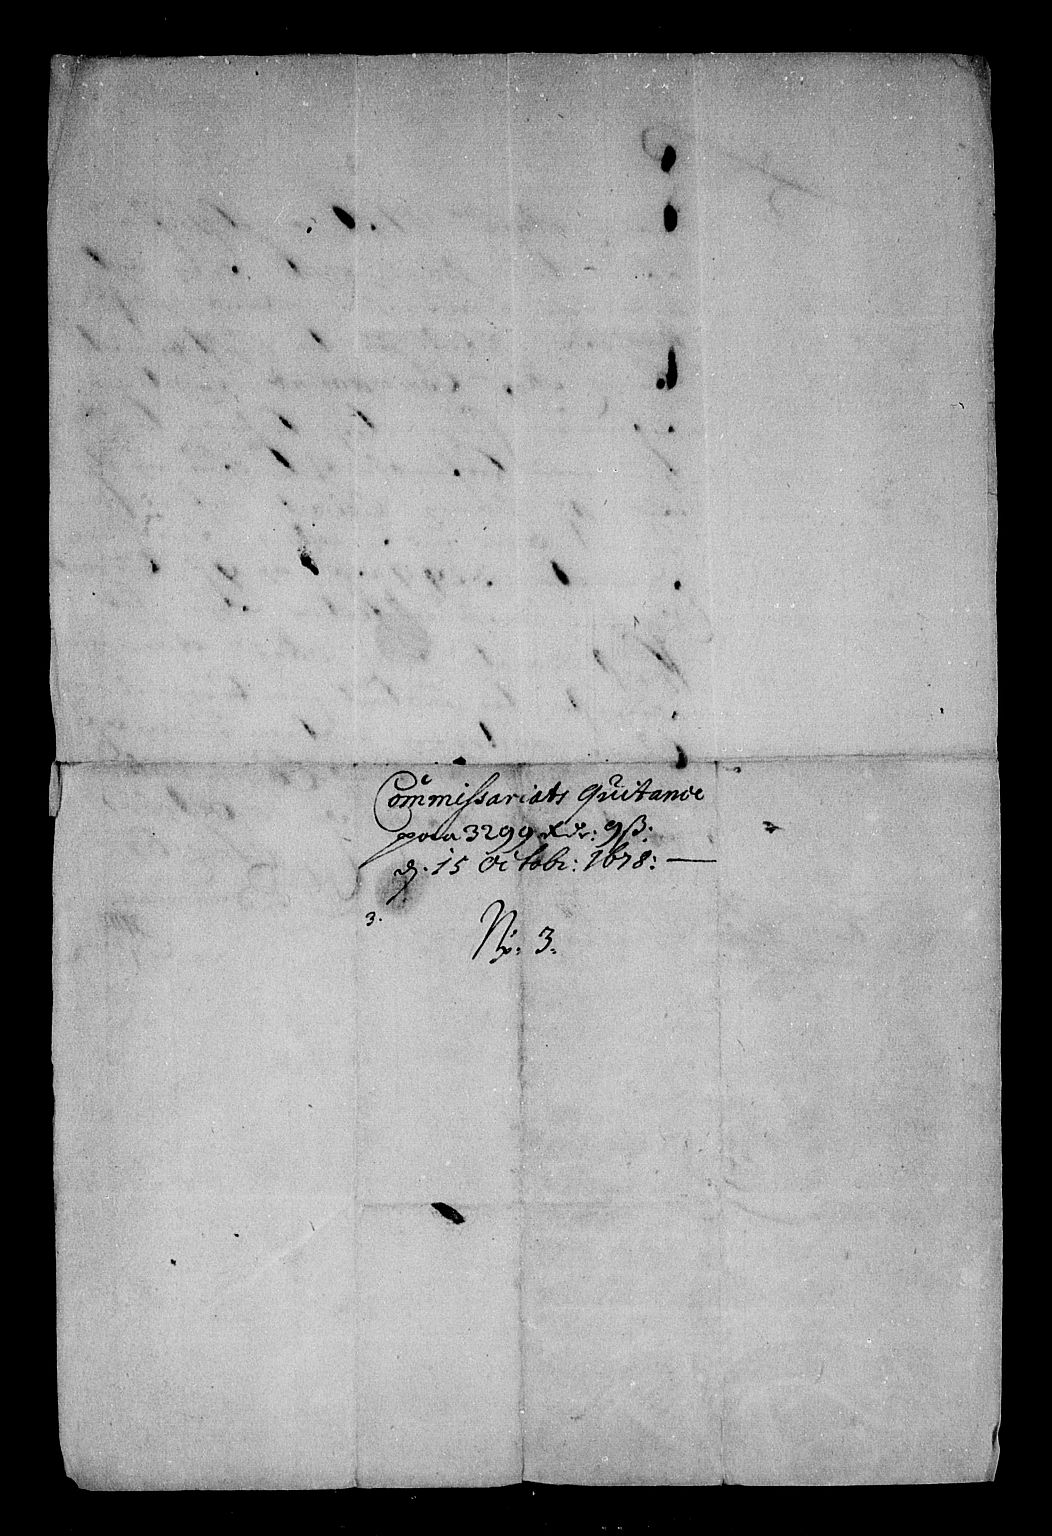 Commissariats Quitance
paa 3299 Rdr: 9ß:
d. 15 Octobr: 1678:
3.
No: 3.